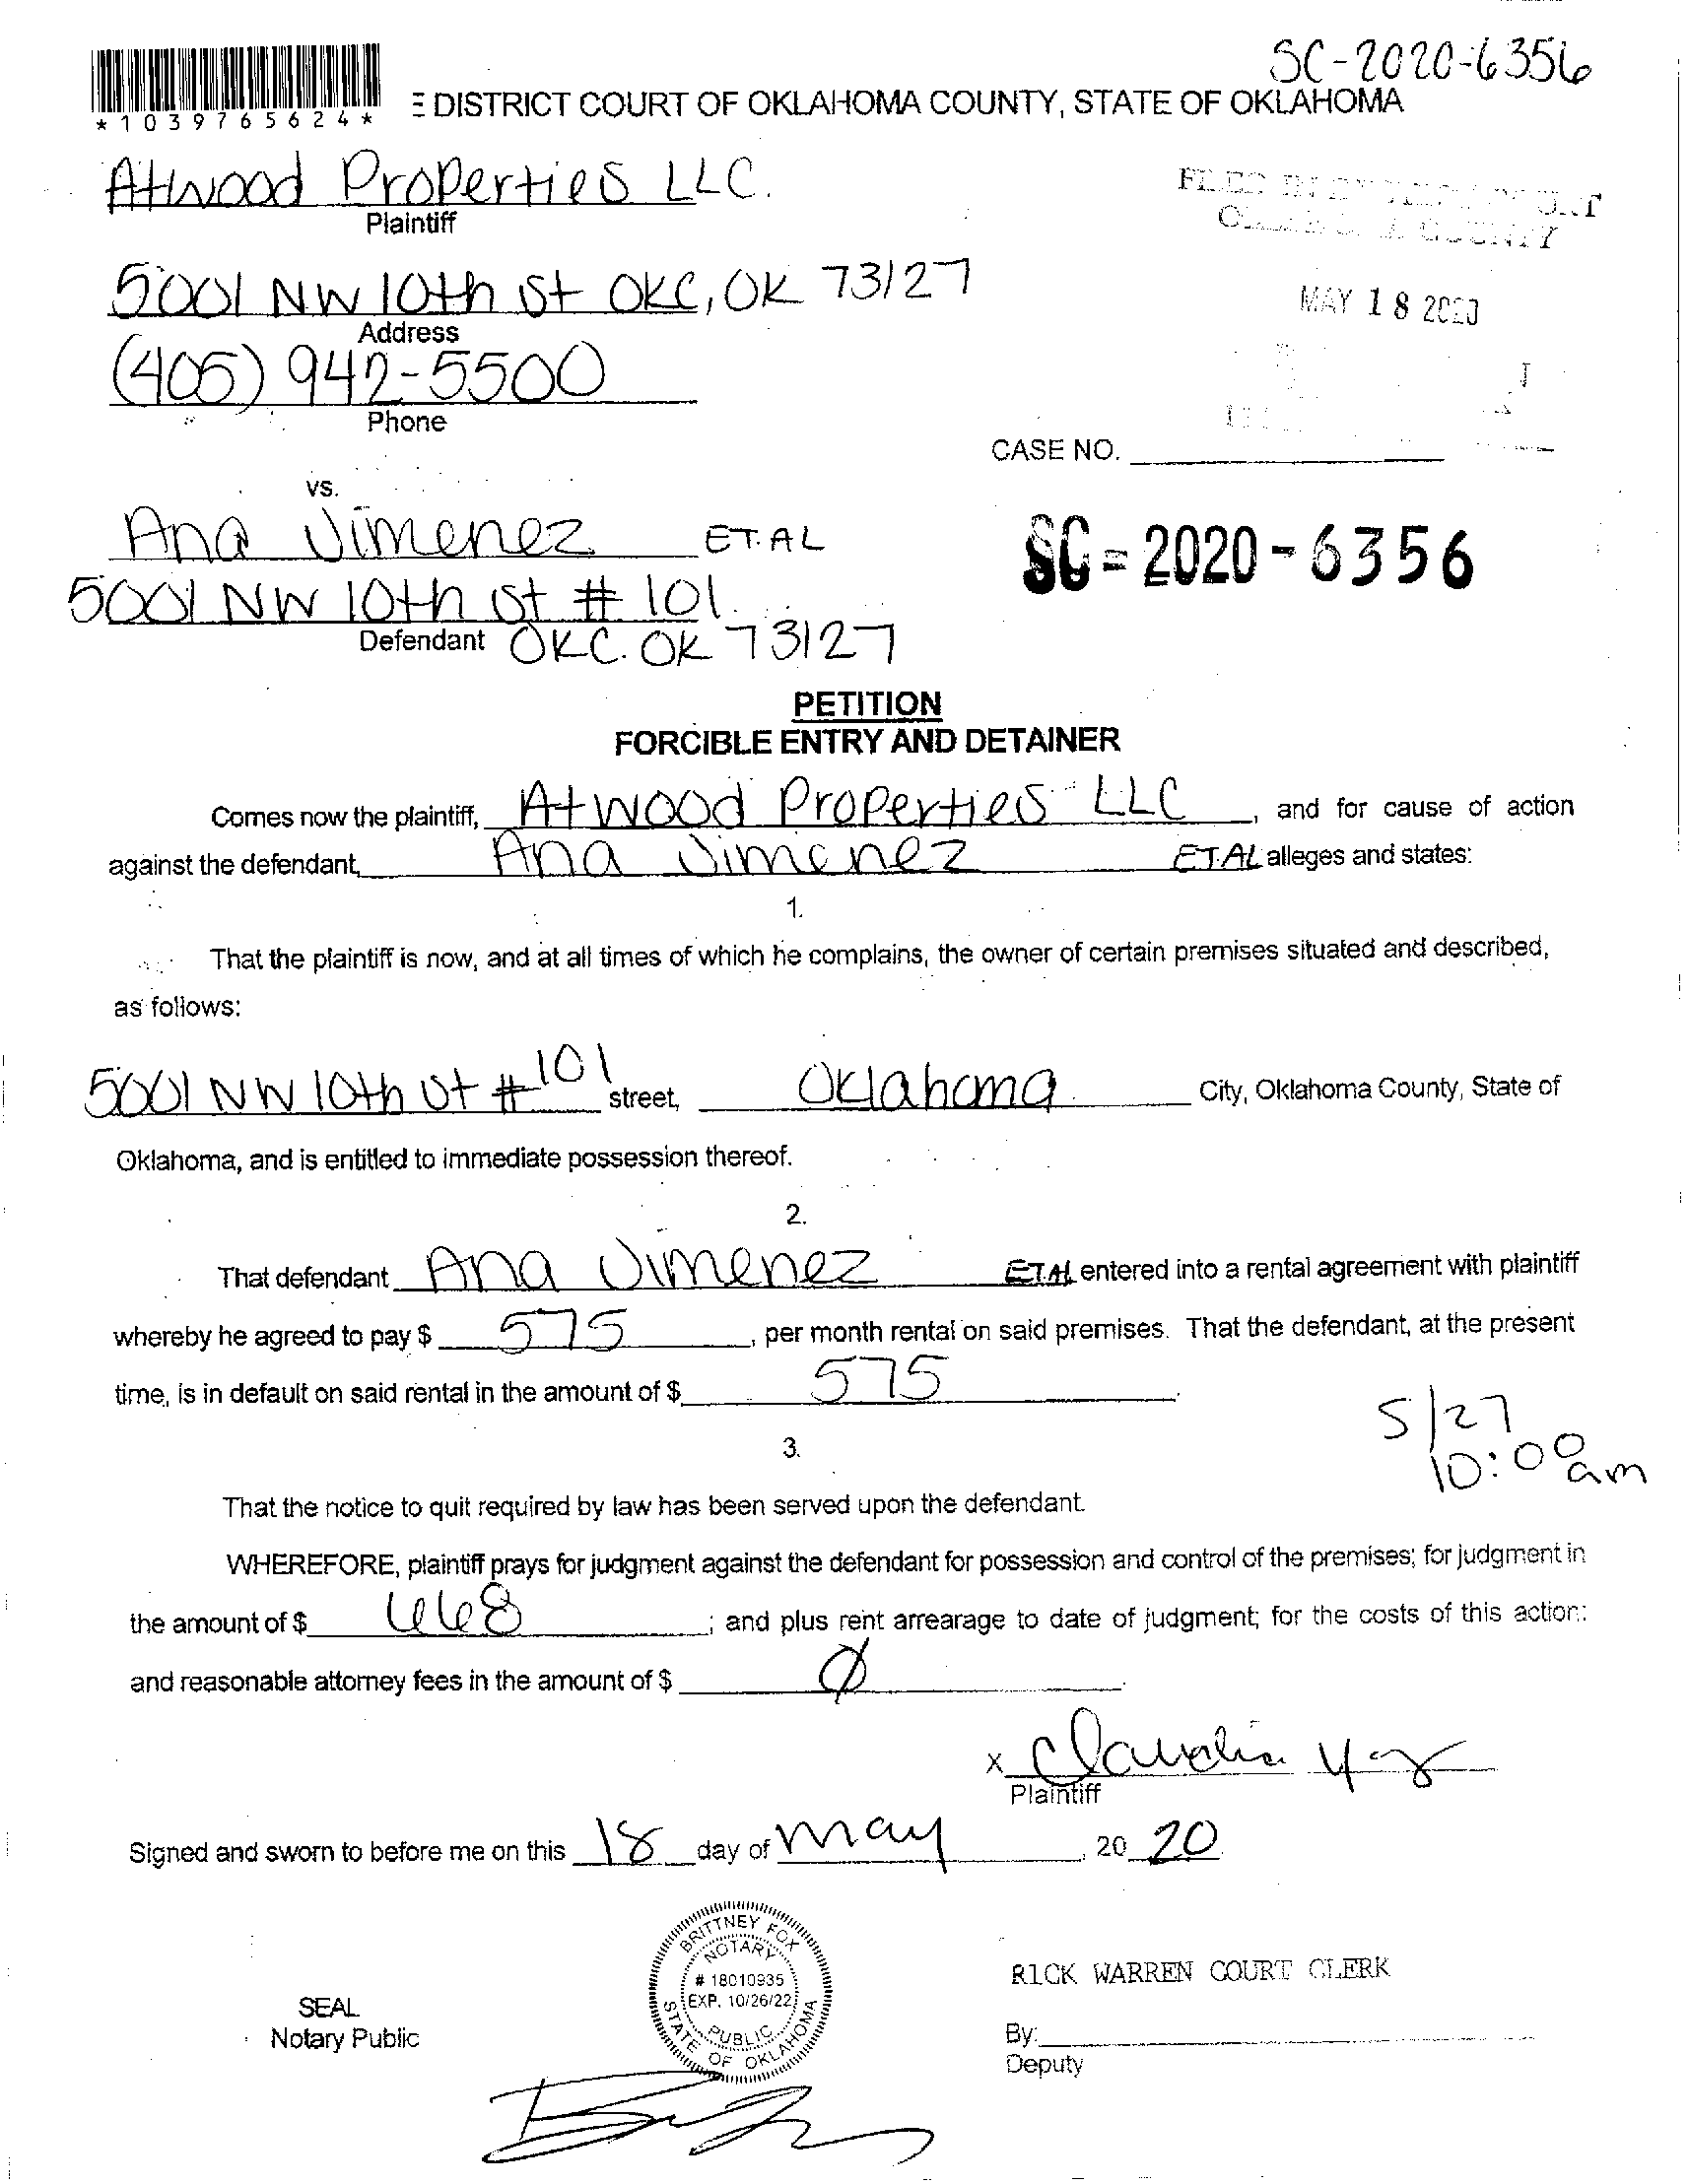 SC-2020-6356
*1039765624*
E DISTRICT COURT OF OKLAHOMA COUNTY, STATE OF OKLAHOMA
Atwood Properties LLC.
Plaintiff
5001 NW 10th St OKC, OK 73127
Address
MAY 18 2020
(405) 942-5500
Phone
CASE NO.
vs.
Ana Jimenez ET.AL
SC=2020-6356
5001 NW 10th St # 101
Defendant OKC. OK 73127
PETITION
FORCIBLE ENTRY AND DETAINER
Comes now the plaintiff, Atwood Properties LLC, and for cause of action
against the defendant, Ana Jimenez ET.AL alleges and states:
1.
That the plaintiff is now, and at all times of which he complains, the owner of certain premises situated and described,
as follows:
5001 NW 10th St #101 street, Oklahoma City, Oklahoma County, State of
Oklahoma, and is entitled to immediate possession thereof.
2.
That defendant Ana Jimenez ETAL entered into a rental agreement with plaintiff
whereby he agreed to pay $ 575, per month rental on said premises. That the defendant, at the present
time, is in default on said rental in the amount of $ 575
5/27
10:00am
3.
That the notice to quit required by law has been served upon the defendant.
WHEREFORE, plaintiff prays for judgment against the defendant for possession and control of the premises; for judgment in
the amount of $ 668; and plus rent arrearage to date of judgment; for the costs of this action:
and reasonable attorney fees in the amount of $ Ø
x Claudia
Plaintiff
Signed and sworn to before me on this 18 day of May, 20 20
BRITTNEY FOX
NOTARY
# 18010935
EXP. 10/26/22
PUBLIC
STATE OF OKLAHOMA
RICK WARREN COURT CLERK
SEAL
Notary Public
By:
Deputy